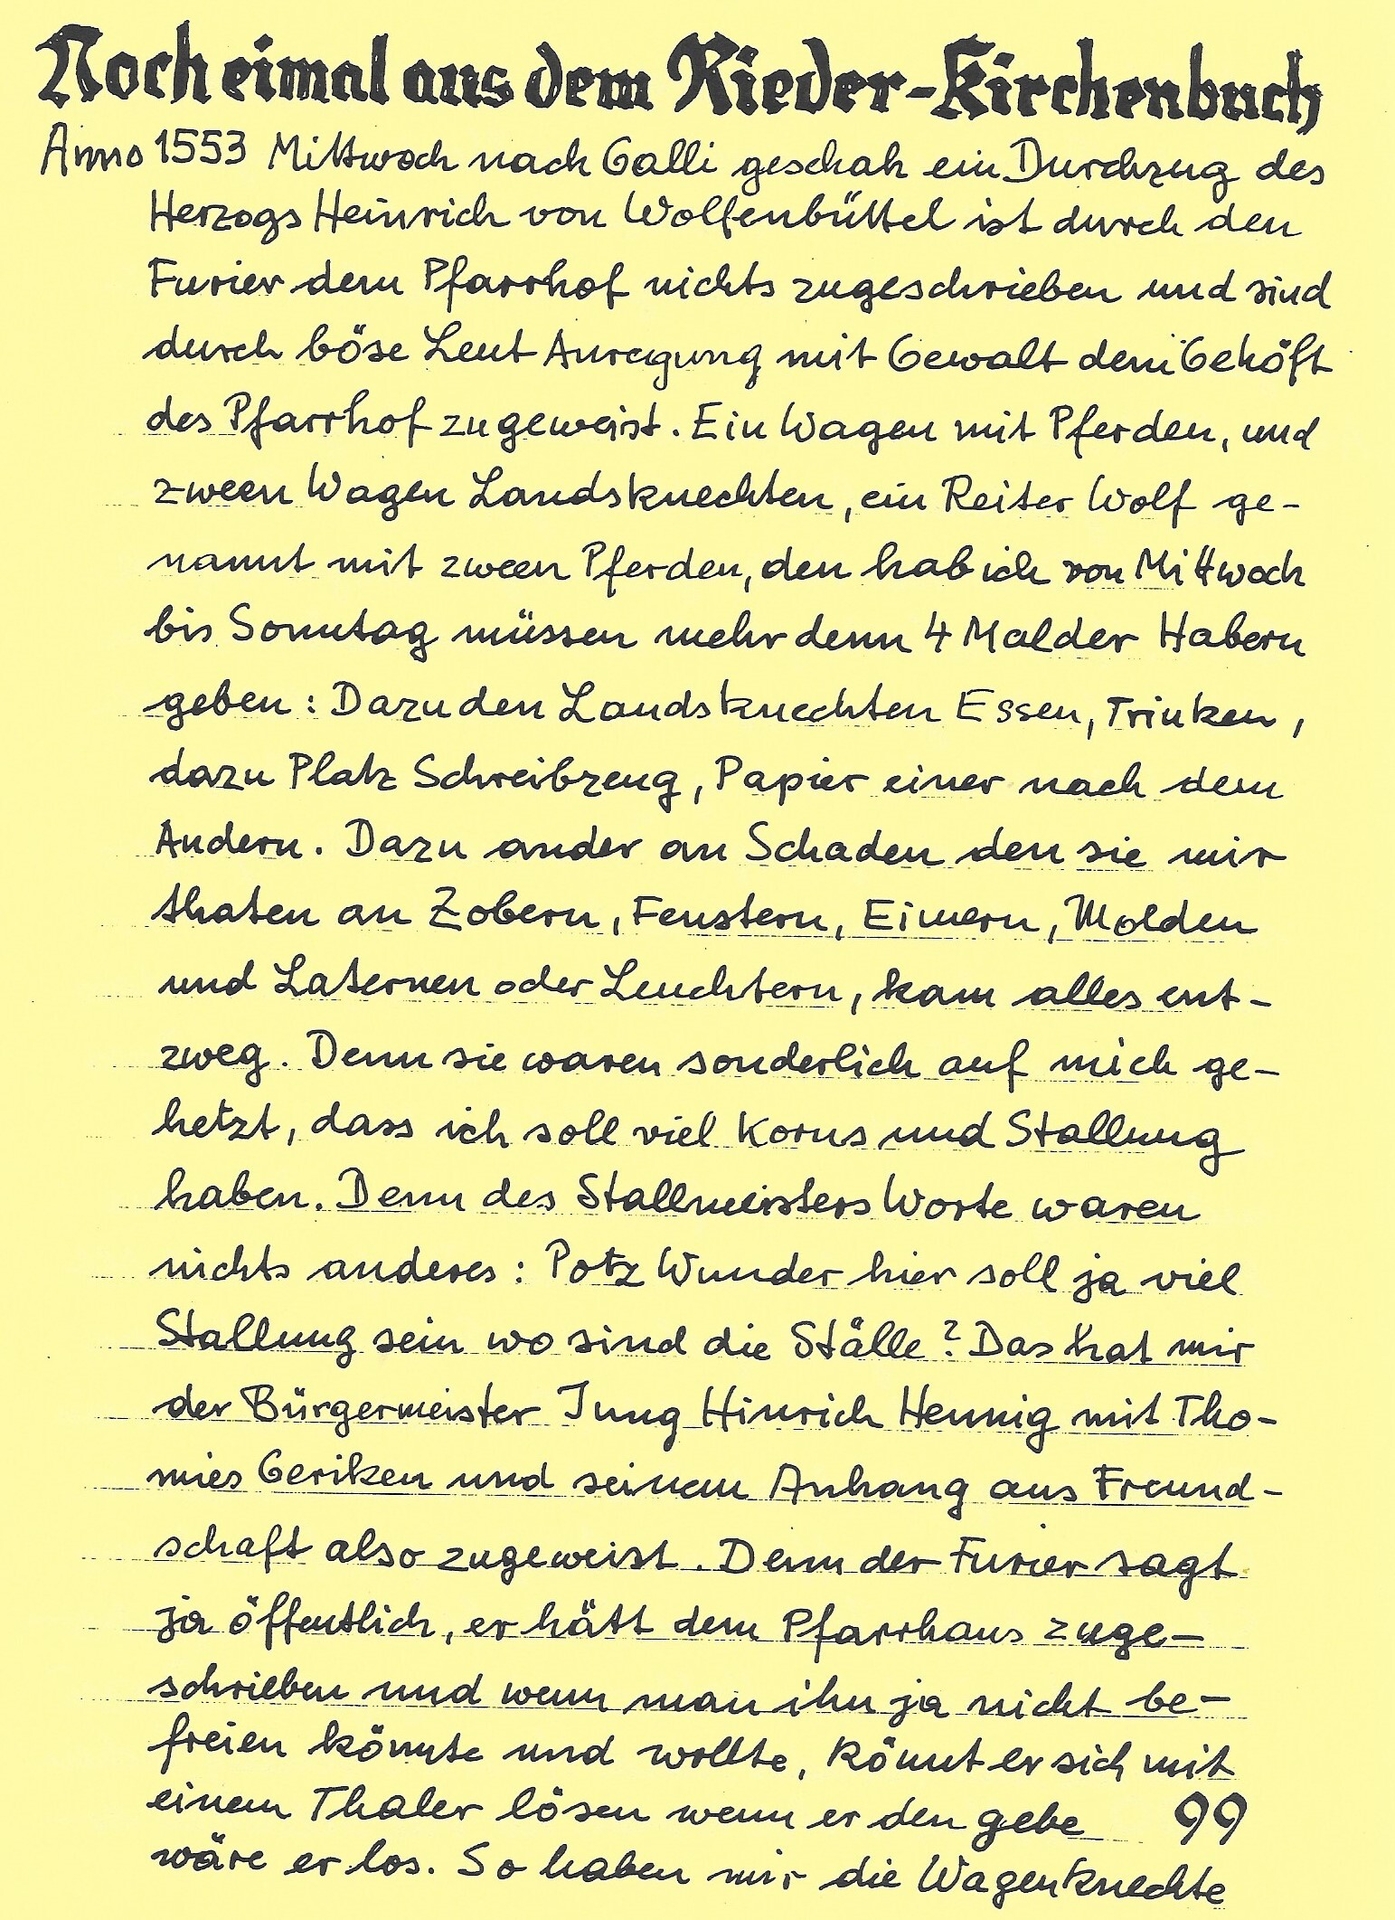 Noch eimal aus dem Rieder-Kirchenbuch
Anno 1553 Mittwoch nach Galli geschah ein Durchzug des
Herzogs Heinrich von Wolfenbüttel ist durch den
Furier dem Pfarrhof nichts zugeschrieben und sind
durch böse Leut Anregung mit Gewalt dem Gehöft
des Pfarrhof zugeweist. Ein Wagen mit Pferden, und
zween Wagen Landsknechten, ein Reiter Wolf ge-
nannt mit zween Pferden, den hab ich von Mittwoch
bis Sonntag müssen mehr denn 4 Malder Habern
geben: Dazu den Landsknechten Essen, Trinken,
dazu Platz Schreibzeug, Papier einer nach dem
Andern. Dazu ander an Schaden den sie mir
thaten an Zobern, Fenstern, Eimern, Molden
und Laternen oder Leuchtern, kam alles ent-
zweg. Denn sie waren sonderlich auf mich ge-
hetzt, dass ich soll viel Korns und Stallung
haben. Denn des Stallmeisters Worte waren
nichts anderes: Potz Wunder hier soll ja viel
Stallung sein wo sind die Ställe? Das hat mir
der Bürgermeister Jung Hinrich Hennig mit Tho-
mies Geriken und seinem Anhang aus Freund-
schaft also zugeweist. Denn der Furier sagt
ja öffentlich, er hätt dem Pfarrhaus zuge-
schrieben und wenn man ihn ja nicht be-
freien könnte und wollte, könnt er sich mit
einem Thaler lösen wenn er den gebe 99
wäre er los. So haben mir die Wagenknechte